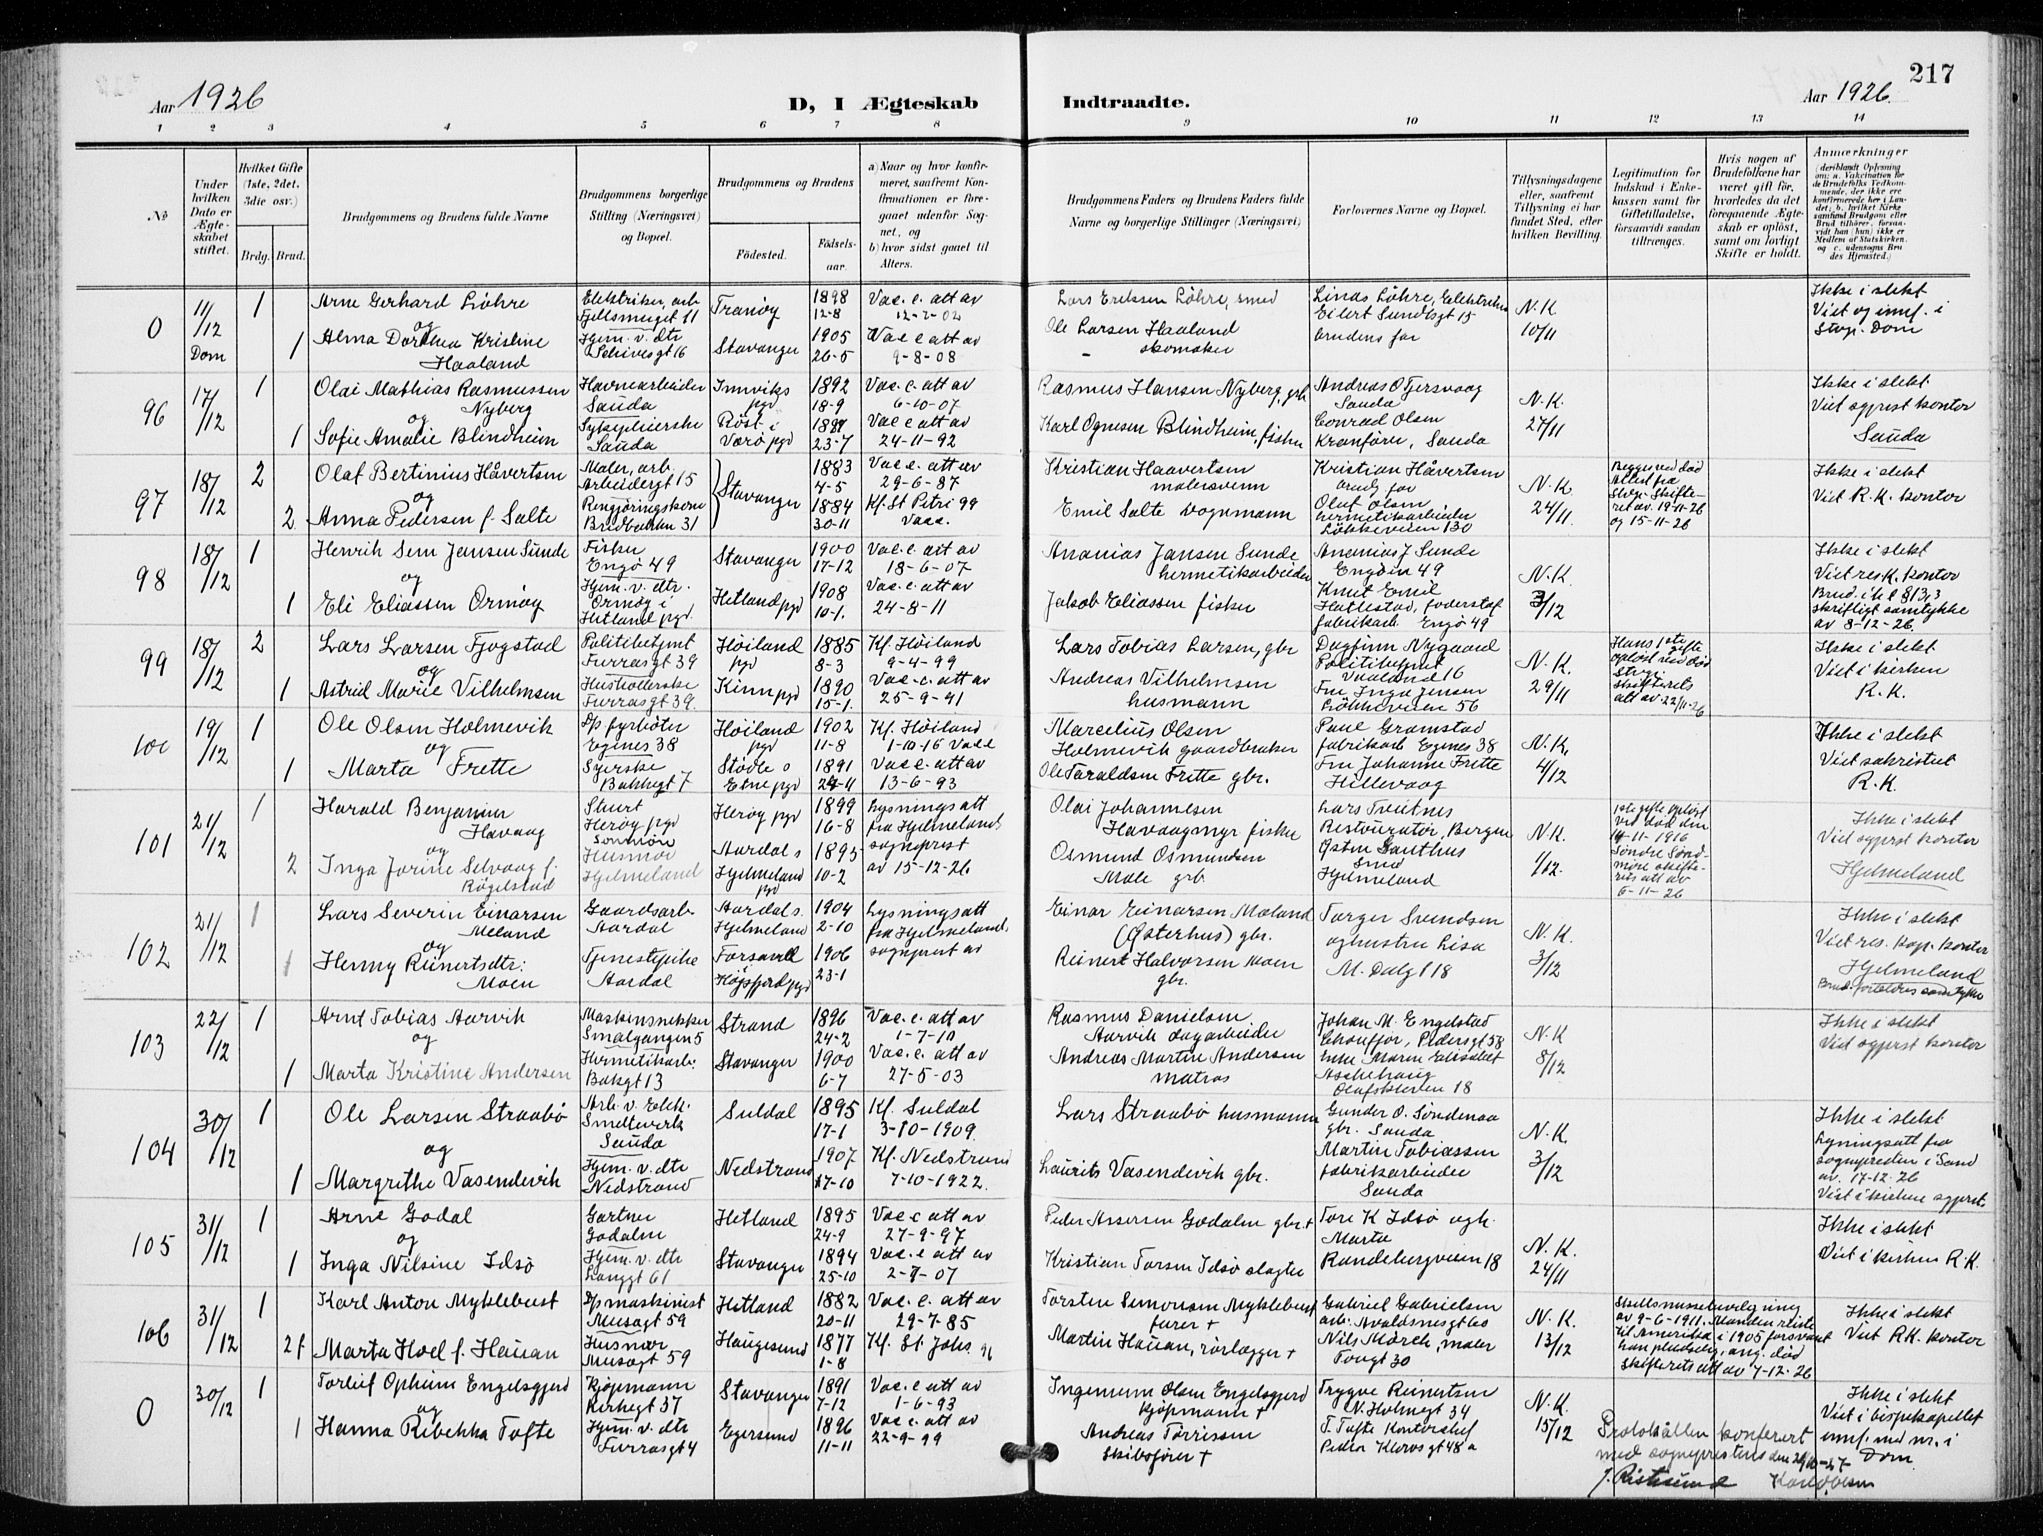 217
Aar 1926
D, I Ægteskab
Indtraadte.
Aar 1926.
1 2 3 4 5 6 7 8 9 10 11 12 13 14
No
Under hvilken Dato er Ægteskabet stiftet.
Hvilket Gifte (1ste, 2det, 3die osv.)
Brdg. Brud.
Brudgommens og Brudens fulde Navne
Brudgommens borgerlige Stilling (Næringsvei) og Bopæl.
Brudgommens og Brudens
Födested.
Födselsaar.
a) Naar og hvor konfirmeret, saafremt Konfirmationen er foregaaet udenfor Sognet, og
b) hvor sidst gaaet til Alters.
Brudgommens Faders og Brudens Faders fulde Navne og borgerlige Stillinger (Næringsvei)
Forlovernes Navne og Bopæl.
Tillysningsdagene eller, saafremt Tillysning ei har fundet Sted, efter hvilken Bevilling.
Legitimation for Indskud i Enkekassen samt for Giftetilladelse, forsaavidt saadan tiltrænges.
Hvis nogen af Brudefolkene har været gift för, hvorledes da det foregaaende Ægteskab er oplöst, samt om lovligt Skifte er holdt.
Anmærkninger
(deriblandt Oplysning om: a. Vakcination for de Brudefolks Vedkommende, der ikke ere konfirmerede her i Landet; b. hvilket Kirkesamfund Brudgom eller Brud tilhörer, forsaavidt han (hun) ikke er Medlem af Statskirken, og c. udensogns Brudes Hjemsted.)
0 11/12 Dom 1 Arne Gerhard Løhre Elektriker, arb Fjellsmuget 11 Tranöy 1898 12-8 Vac. e. att av 12-2-02 Lars Eriksen Löhre, smed Linds Löhre, Elektriker Eilert Sundtsgt 15 N.K. 10/11 Ikke i slekt Viet og innf. i Stvgr. Dom
og
1 Alma Dorthea Kristine Haaland Hjem. v. dtr Schivesgt 16 Stavanger 1905 26-5 Vac e att av 9-8-08 Ole Larsen Haaland skomaker brudens far
96 17/12 1 Olai Mathias Rasmussen Nyberg Havnearbeider Sauda Innviks pgd 1892 18-9 Vac. e. att av 6-10-07 Rasmus Hansen Nyberg, grb Andreas O Tjersvaag Sauda N.K. 27/11 Ikke i slekt Viet sgprest kontor Sauda
og
1 Sofie Amalie Blindheim Sykepleierske Sauda Röst i Værö pgd 23-7 Vac e att av 24-11-92 Karl Ognesen Blindheim, fisker Conrad Olsen Kranförer, Sauda
97 18/12 2 Olaf Bertinius Håvertsen Maler, arb Arbeidergt 15 Stavanger 1883 4-5 Vac e. att av 29-6-87 Kristian Haavertsen malersvenn Kristian Håvertsen brudg far N.K. 24/11 Begge ved död Attest fra Stvgr. Skifteret av 19-11-26 og 15-11-26 Ikke i slekt Viet R.K. kontor
og
2 Anna Pedersen f. Salte Rengjøringskone Bredbakken 31 1884 30-11 Kf. St Petri 99 Vacc. Emil Salte vognmann Olaf Olsen hermetikarbeider Løkkeveien 130
98 18/12 1 Henrik Sem Jansen Sunde Fisker Engö 49 Stavanger 1900 17-12 Vac. e. att av 18-6-07 Ananias Jansen Sunde hermetikarbeider Ananias J Sunde Engöin 49 N.K. 3/12 Ikke i slekt Viet res. K. kontor
og
1 Eli Eliassen Ormöy Hjem. v. dtr. Ormöy i Hetland pgd. Hetland pgd 1908 10-1. Vac. e. att av 24-8-11 Jakob Eliassen fisker Knut Emil Hatlestad, fabrikarb Engö 49 skriftligt samtykke av 8-12-26.
99 18/12 2 Lars Larsen Fjogstad Politibetjent Furrasgt 39 Höiland pgd 1885 8-3 Kf. Höiland 9-4-99 Lars Tobias Larsen, gbr Dagfinn Nygaard Politibetjent Vaaland 16 N.K. 29/11 Hans 1ste gifte oplöst ved död Stvgr. Skifterets att av 22/11-26 Ikke i slekt Viet i kirken R.K.
og
1 Astrid Marie Vilhelmsen Husholderske Furrasgt 39. Kinn pgd 1890 15-1. Vac. e. att av 25-9-91 Andreas Vilhelmsen husmann Fru Inga Jensen Løkkeveien 56
100 19/12 1 Ole Olsen Holmevik Dp fyrböter Egines 38 Höiland pgd 1902 11-8 Kf. Höiland 1-10-16 Vacc Marcelius Olsen Holmevik gaardbruker Paul Gramstad fabrikarb Egines 38 N.K. 4/12 Ikke i slekt Viet sakristiet R.K.
og
1 Marta Frette Syerske Bakkegt 7 Stödle o Etne pgd 1891 24-11 Vac e. att av 13-6-93 Ole Taraldsen Frette gbr. Fru Johanne Frette Hillevaag
101 21/12 1 Harald Benjamin Havaag Stuert Heröy pgd Sunnmöre Heröy pgd 1899 16-8 Lysningsatt fra Hjelmeland, sogneprest av 15-12-26 Olai Johannesen Havaagmyr fisker Lars Tveitnes Restauratör, Bergen N.K. 1/12. 1ste gifte oplöst ved död den 14-11-1916 Söndre Söndmöre skifterets att av 6-11-26 Ikke i slekt Viet sgprest kontor Hjelmeland
og
2 Inga Jorine Selvaag f. Bøgelstad Husmor Hjelmeland Aardal s Hjelmeland pgd 1895 10-2 Osmund Osmundsen Mæle gbr. Østen Santhus Smed Hjelmeland
102 21/12 1 Lars Severin Einarsen Meland Gaardsarb. Aardal Aardal s. Hjelmeland 1904 2-10 Lysningsatt fra Hjelmeland, sogneprest av Einar Einarsen Mæland (Østerhus) gbr. Torger Svendsen og hustru Lisa M. Dalgt 18 N.K. 3/12 Ikke i slekt Viet res. kap. kontor Hjelmeland Brud. forældres samtykke
og
1 Henny Reinertsdtr. Moen Tjenestepike Aardal Forsand Högsfjord pgd 1906 23-1 Reinert Halvorsen Moen gbr.
103 22/12 1 Arnt Tobias Aarvik Maskinsnekker Smalgangen 5 Strand 1896 24-2 Vac. e. att av 1-7-10 Rasmus Danielsen Aarvik dagarbeider Johan M. Engelstad Chauffør, Pedersgt 58 N.K. 8/12 Ikke i slekt Viet sgprst kontor
og
1 Marta Kristine Andersen Hermetikarb. Bakgt 13 Stavanger 1900 6-7 Vac. e. att av 27-5-03 Andreas Martin Andersen matros Enke Maren Elisabet Askehaug Olafskleven 18
104 30/12 1 Ole Larsen Straabö Arb. v. Elek. Smelteverk Sauda Suldal 1895 17-1 Kf. Suldal 3-10-1909. Lars Straabö husmann Gunder O. Söndenaa gbr. Sauda N.K. 3/12 Ikke i slekt Lysningsatt fra sognepresten i Sand av. 17-12-26 Viet i kirken sgprest.
og
1 Margrithe Vasendevik Hjem. v. dtr Nedstrand Nedstrand 1907 17-10 Kf. Nedstrand 7-10-1922. Laurits Vasendevik gbr. Martin Tobiassen fabrikarbeider Sauda
105 31/12 1 Arne Godal Gartner Godalen Hetland 1895 24-9 Vac e att av 27-9-97 Peder Assersen Godalen gbr + Tore K Idsö og h. Marta Randebergveien 18 N.K. 24/11 Ikke i slekt Viet i kirken R.K.
og
1 Inga Nilsine Idsö Hjem. v. dtr Langgt 61 Stavanger 1894 25-10 Vac. e att av 2-7-07 Kristian Torsen Idsö slagter
106 31/12 1 Karl Anton Myklebust Dp maskinist Musøgt 59 Hetland 1882 20-11 Vac. e. att av 29-7-85 Torsten Simonsen Myklebust fører + Gabriel Gabrielsen arb. Avaldsnesgt 60 N.K. 13/12 Skilsmissebevilgning av 9-6-1911. Manden reiste til Amerika i 1905 forsvant han pludselig, ang. död skifterets att av 7-12-26 Ikke i slekt Viet R.K. kontor
2 f Marta Hoel f. Hauan Husmor Musøgt 59 Haugesund 1877 1-8 Kf. St Johs. Martin Hauan, rørlegger + Nils Mörch, maler Tougt 30
0 30/12 1 Torleif Ophim Engelsgjerd Kjøpmann Kirkegt 37 Stavanger 1891 7-12 Vac. e att av 1-6-93 Ingemum Olsen Engelsgjerd kjøpmann + Trygve Reinertsen N. Holmegt 34 N.K. 15/12 Ikke i slekt Viet i bispekapellet innf. med nr. i Dom.
og
1 Hanna Rebekka Tofte Hjem. v. dtr Furrasgt 4 Egersund 1896 11-11 Vac e. att av 22-9-99 Andreas Tørrissen skibsfører + T. Tofte kontorchef Peder Klowsgt 48 a
Protokollen konferert
med sogneprestens den